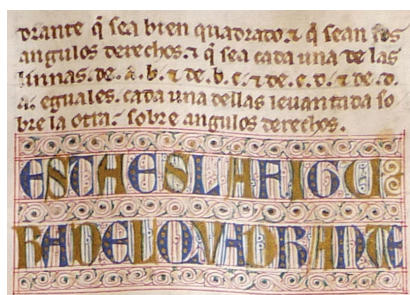 drante q̃ sea bien quadrato. ⁊ q̃ sean sos
angulos derechos. ⁊ q̃ sea cada una de las
linnas. de .a. b. ⁊ de .b. c. ⁊ de .c. d. ⁊ de .d.
.a. eguales. cada una dellas leuantada so
bre la otra. sobre angulos derechos.
ESTA ES LA FIGU
RA DEL QUADRANTE